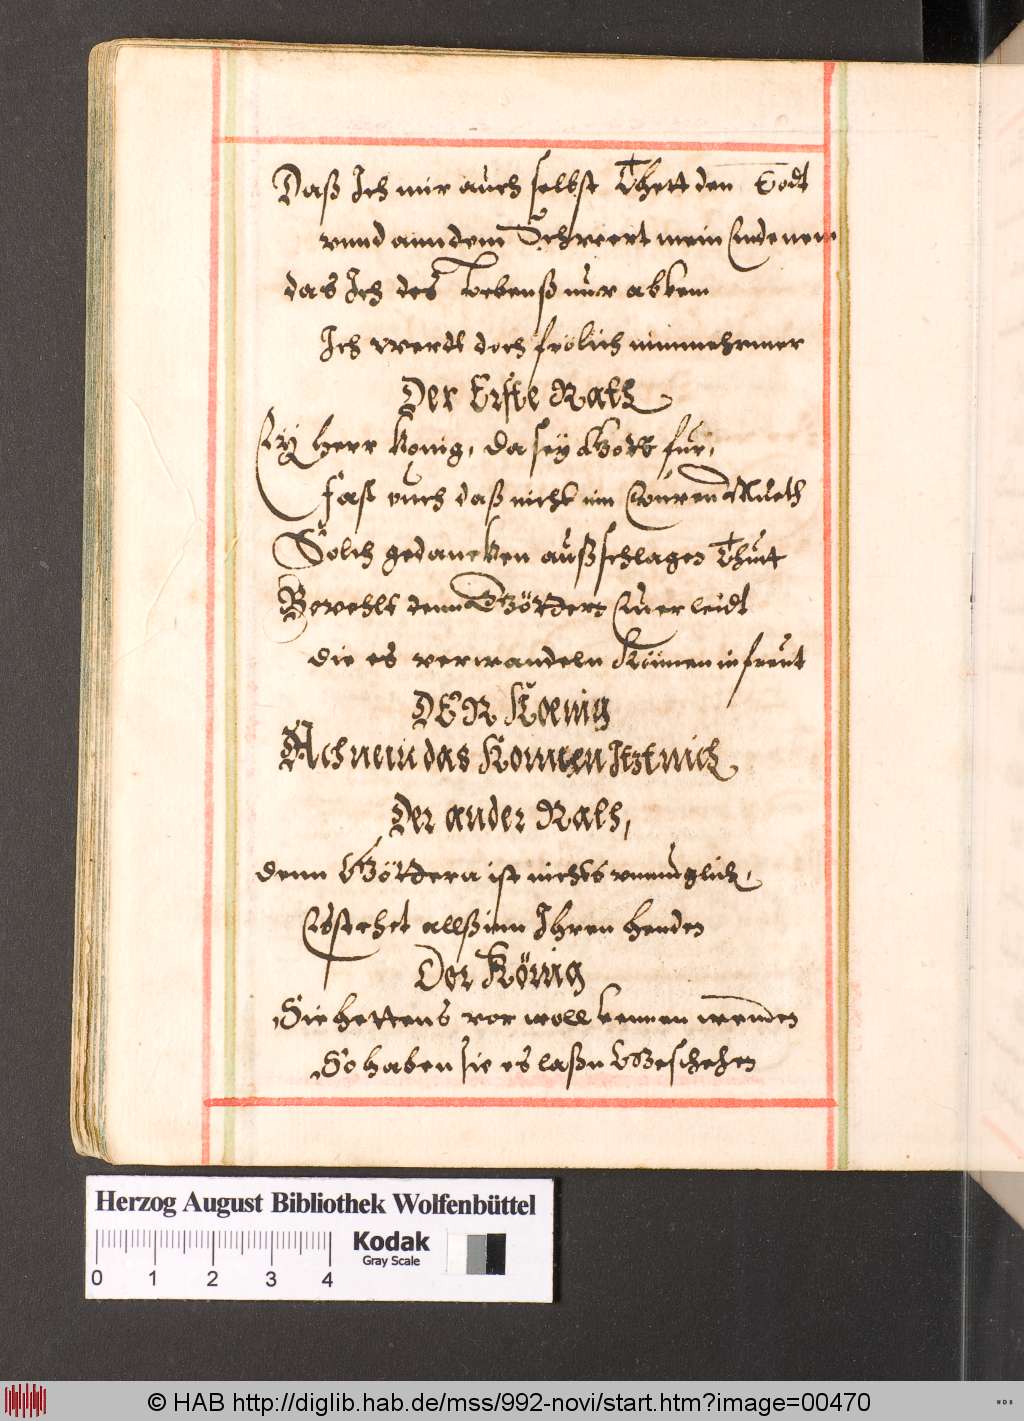 Daß Ich mir auch selbst Thett den Todt
vnnd ann dem Schwert mein Endt nem
das Ich des Lebenß nur abkem
Ich werdt doch frölich nimmehrmer
Der Erste Rath
Ey herr König, da sey Gott für,
fast euch daß nicht im Eüren Mueth
Solch gedancken außschlagen Thutt
Bevehlt denn Göttern Euer leidt
die es verwandeln Künnen in freüt
DER Koenig
Ach nein das Konnen Itzt nich
Der ander Rath,
denn Göttern ist nichts vnmuglich,
Es stehet allß inn Ihren henden
Der König
Sie hettens vor woll kennen wenden
So haben sie es laßn Geschehen
Herzog August Bibliothek Wolfenbüttel
Kodak
Gray Scale
0 1 2 3 4
© HAB http://diglib.hab.de/mss/992-novi/start.htm?image=00470